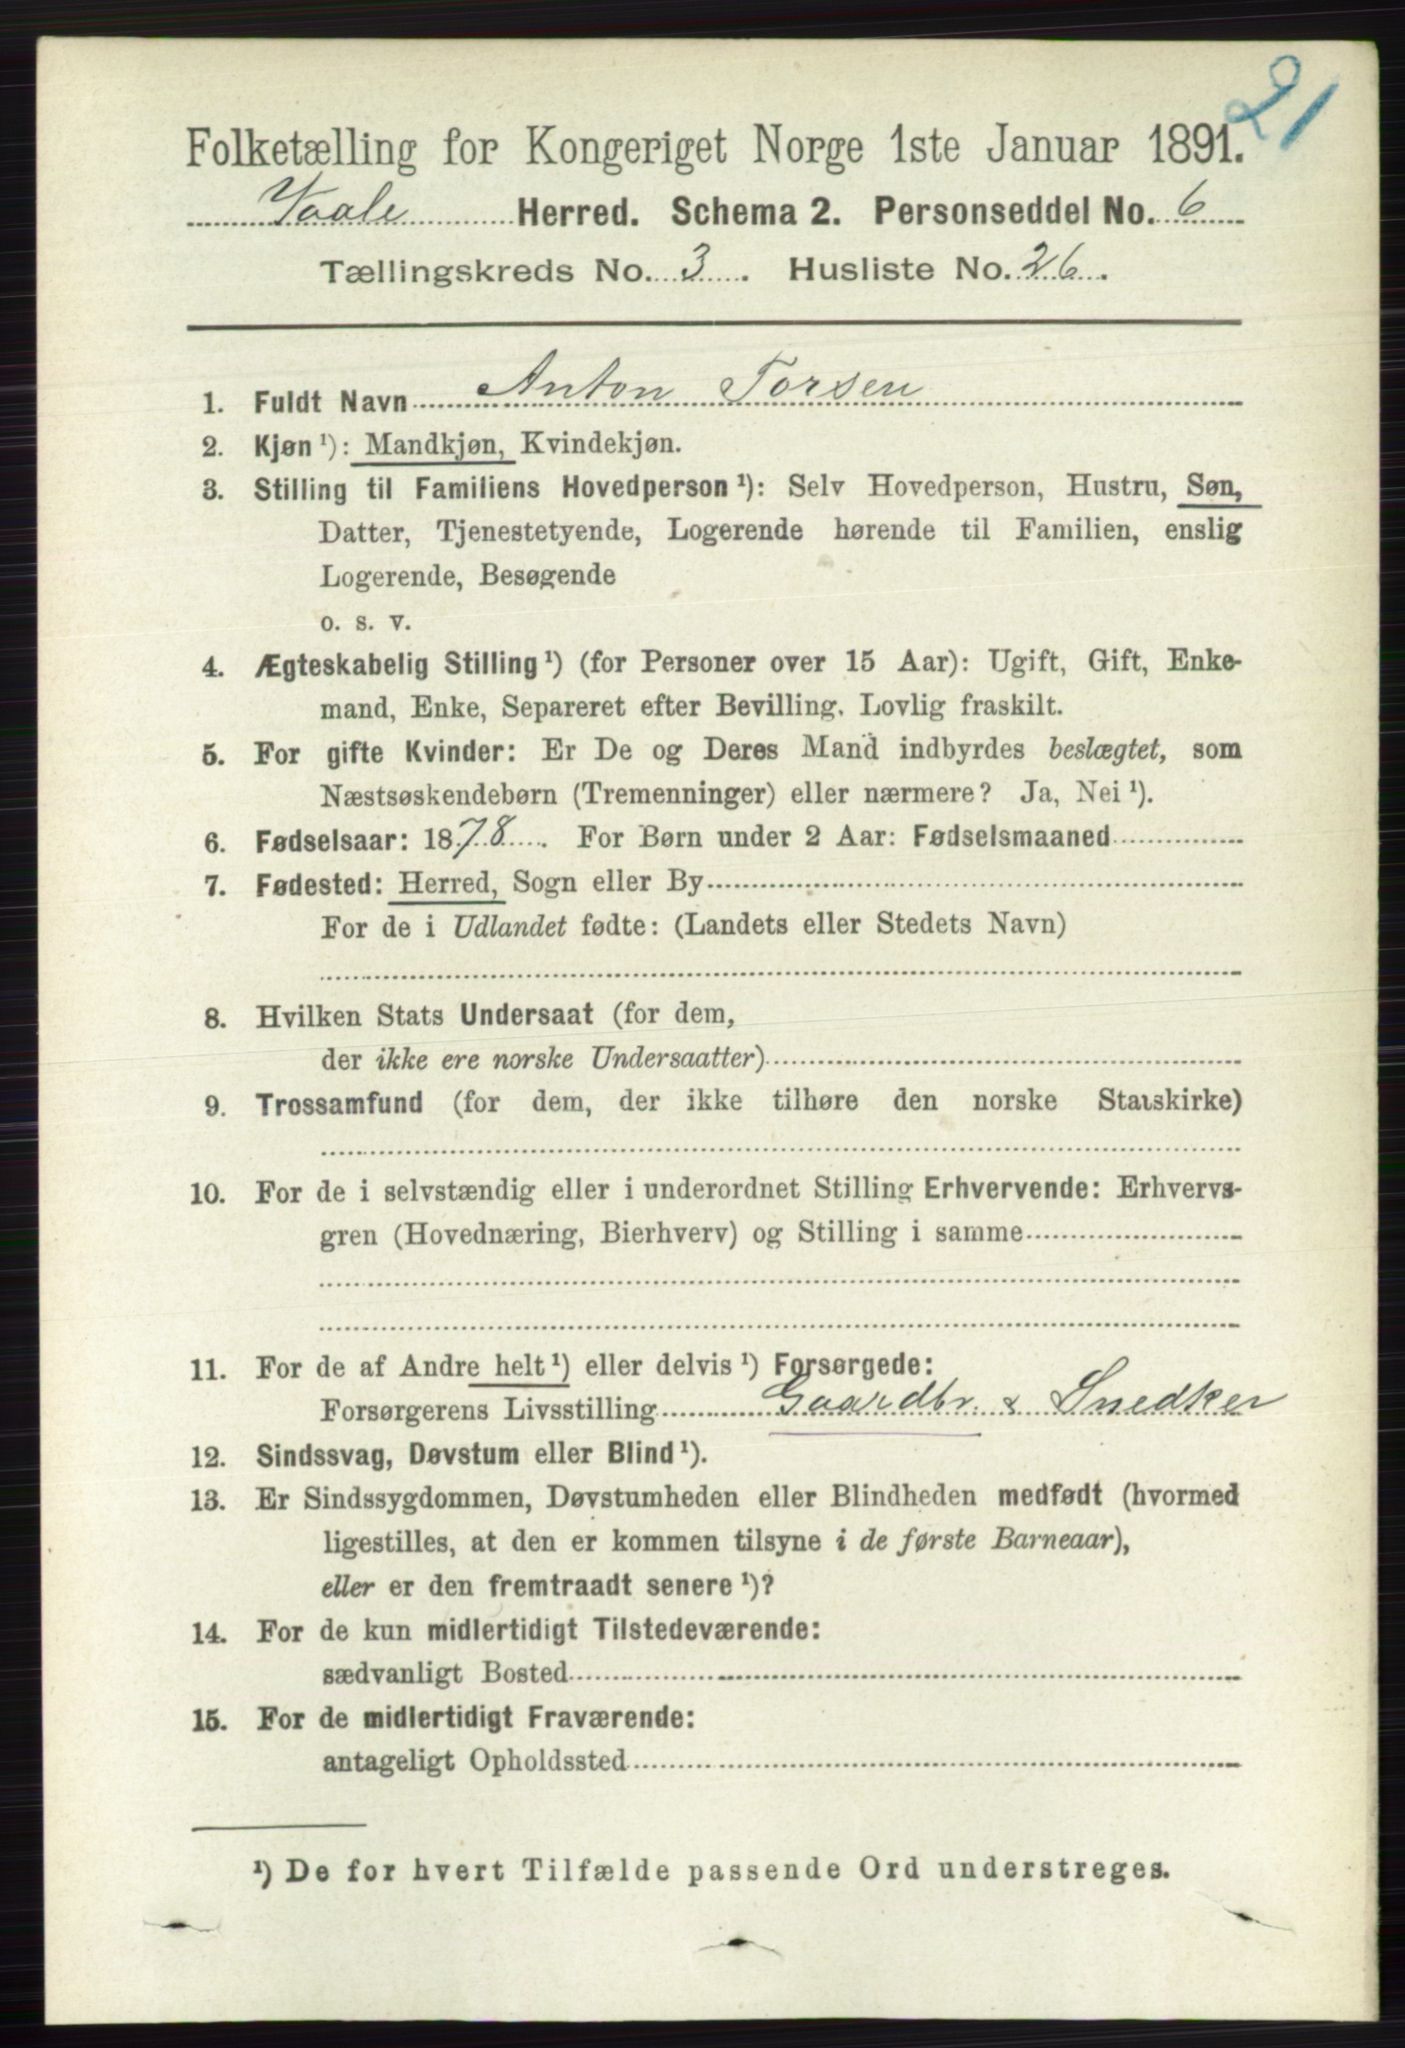 21
Folketælling for Kongeriget Norge 1ste Januar 1891.
Vaale Herred. Schema 2. Personseddel No. 6
Tællingskreds No. 3. Husliste No. 26.
1. Fuldt Navn Anton Torsen
2. Kjøn ¹): Mandkjøn, Kvindekjøn.
3. Stilling til Familiens Hovedperson ¹): Selv Hovedperson, Hustru, Søn,
Datter, Tjenestetyende, Logerende hørende til Familien, enslig
Logerende, Besøgende
o. s. v.
4. Ægteskabelig Stilling ¹) (for Personer over 15 Aar): Ugift, Gift, Enke-
mand, Enke, Separeret efter Bevilling. Lovlig fraskilt.
5. For gifte Kvinder: Er De og Deres Mand indbyrdes beslægtet, som
Næstsøskendebørn (Tremenninger) eller nærmere? Ja, Nei ¹).
6. Fødselsaar: 1878. For Børn under 2 Aar: Fødselsmaaned
7. Fødested: Herred, Sogn eller By
For de i Udlandet fødte: (Landets eller Stedets Navn)
8. Hvilken Stats Undersaat (for dem,
der ikke ere norske Undersaatter)
9. Trossamfund (for dem, der ikke tilhøre den norske Statskirke)
10. For de i selvstændig eller i underordnet Stilling Erhvervende: Erhvervs-
gren (Hovednæring, Bierhverv) og Stilling i samme
11. For de af Andre helt ¹) eller delvis ¹) Forsørgede:
Forsørgerens Livsstilling Gaardbr. & Snedker
12. Sindssvag, Døvstum eller Blind ¹).
13. Er Sindssygdommen, Døvstumheden eller Blindheden medfødt (hvormed
ligestilles, at den er kommen tilsyne i de første Barneaar),
eller er den fremtraadt senere ¹)?
14. For de kun midlertidigt Tilstedeværende:
sædvanligt Bosted
15. For de midlertidigt Fraværende:
antageligt Opholdssted
¹) De for hvert Tilfælde passende Ord understreges.